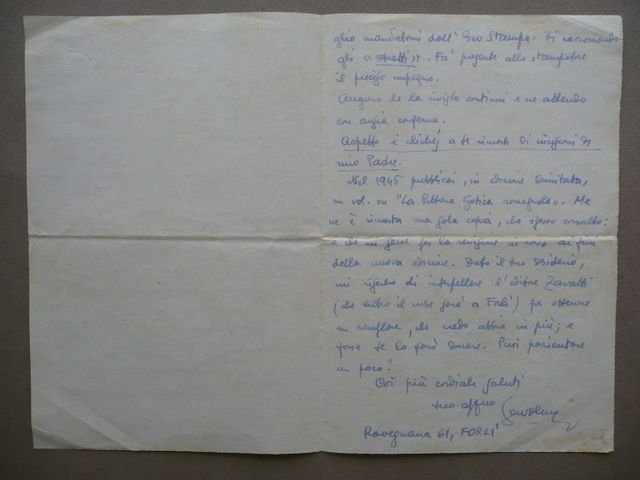 glio mandatomi dall' Eco Stampa. Ti raccomando
gli estratti. Fa' presente allo stampatore
il preciso impegno.
Auguro che la rivista continui e ne attendo
con ansia conferma.
Aspetto i clichés a te rimasti di incisioni di
mio Padre.
Nel 1945 pubblicai, in edizione limitata,
un vol. su "La Pittura Gotica romagnola". Me
ne è rimasta una sola copia, che spesso consulto;
e che mi serve per la revisione in corso ai fini
della nuova edizione. Dato il tuo desiderio,
mi riservo di interpellare l'editore Zavatti
(che entro il mese sarà a Forlì) per ottenere
un esemplare, che credo abbia in più; e
forse te lo farò donare. Puoi pazientare
un poco?
Coi più cordiali saluti
tuo affmo
Ravegnana 61, FORLI'